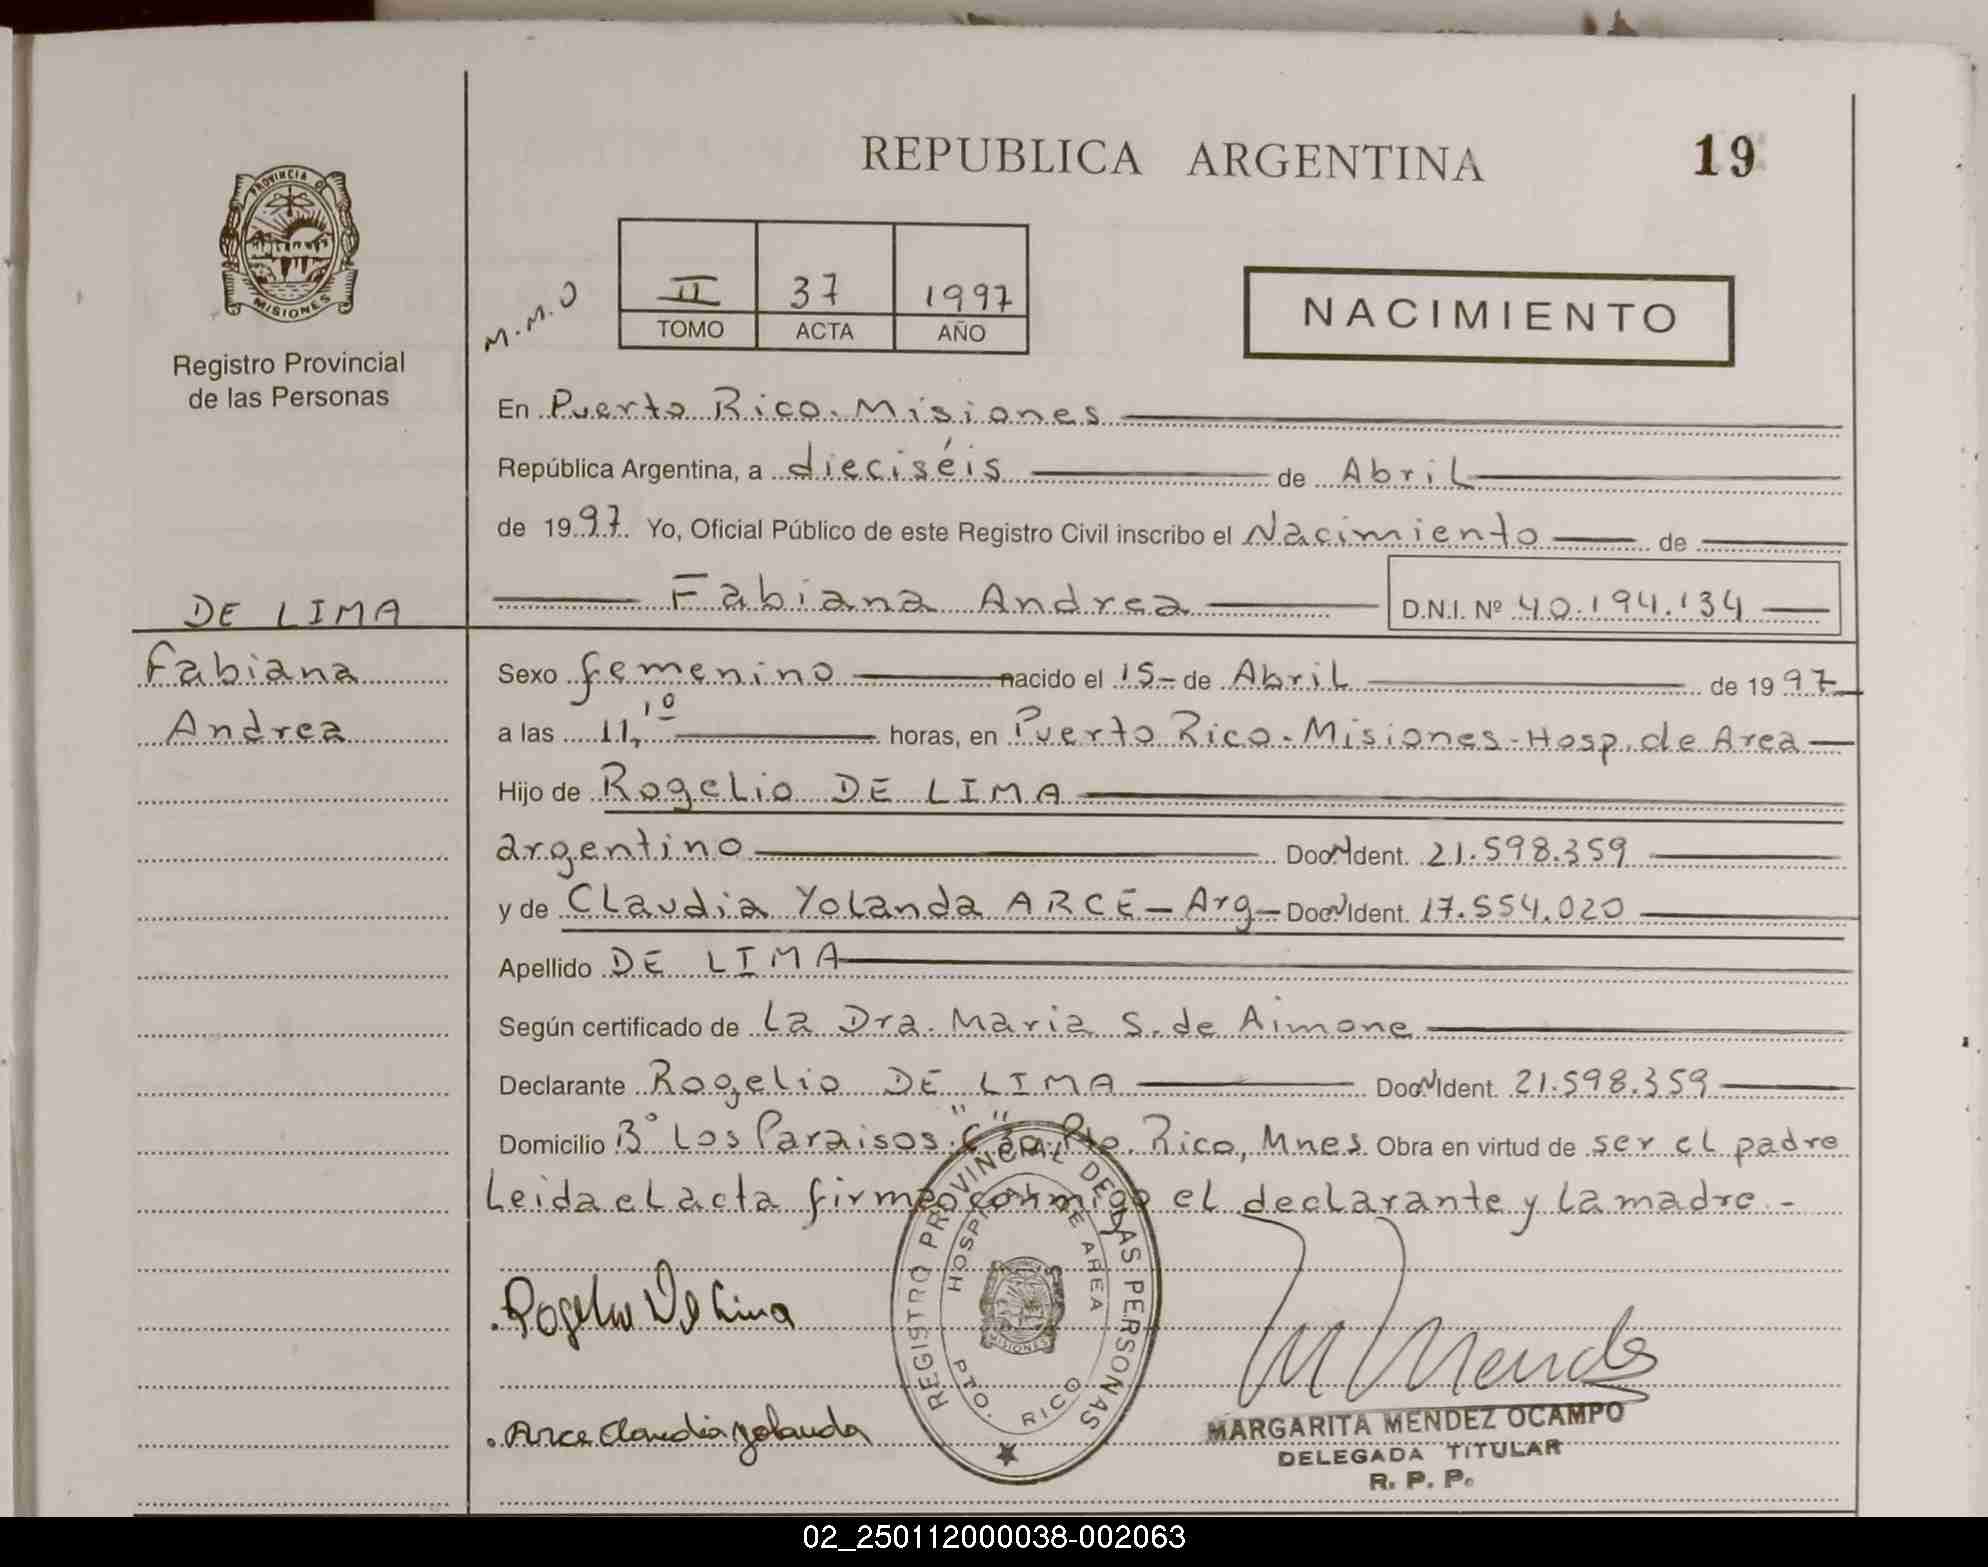 REPUBLICA ARGENTINA
19
PROVINCIA D
MISIONES
Registro Provincial
de las Personas
M.M.O
II 37 1997
TOMO ACTA AÑO
NACIMIENTO
En Puerto Rico. Misiones
República Argentina, a dieciséis de Abril
de 1997 Yo, Oficial Público de este Registro Civil inscribo el Nacimiento de
DE LIMA
Fabiana Andrea D.N.I. Nº 40.194.134
Fabiana
Sexo femenino nacido el 15- de Abril de 1997
Andrea
a las 11,10 horas, en Puerto Rico. Misiones - Hosp. de Area
Hijo de Rogelio DE LIMA
argentino Doc. Ident. 21.598.359
y de Claudia Yolanda ARCE - Arg - Doc. Ident. 17.554.020
Apellido DE LIMA
Según certificado de La Dra. Maria S. de Aimone
Declarante Rogelio DE LIMA Doc. Ident. 21.598.359
Domicilio Bº Los Paraisos "C" Pto. Rico, Mnes. Obra en virtud de ser el padre
Leida el acta firma conmigo el declarante y la madre.-
Rogelio De Lima
Arce Claudia Yolanda
REGISTRO PROVINCIAL DE LAS PERSONAS
HOSPITAL DE AREA
MISIONES
PTO. RICO
M Mendez
MARGARITA MENDEZ OCAMPO
DELEGADA TITULAR
R. P. P.
02_250112000038-002063